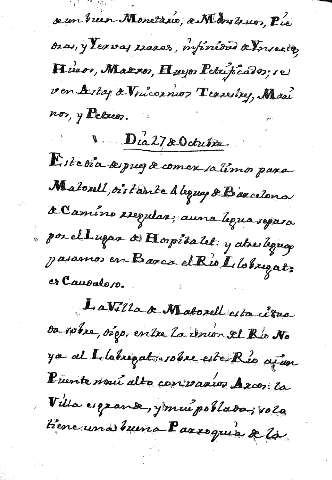 de un buen Monetario, de Monstruos, Pie
dras, y Yervas raras, infinidad de Ynsectos,
Huesos, Maderos, Hojas Petrificados; se
ven Astas de Unicornios Terrestres, Mari
nos, y Petreos.
Dia 27 de Octubre
Este dia despues de comer salimos para
Matorell, distante 4 leguas de Barcelona
de Camino rregular; a una legua se pasa
por el Lugar de Hospitalet: y a tres leguas
pasamos en Barca el Rio Llobregat:
es Caudaloso.
La Villa de Matorell esta citua
da sobre, digo, entre la union del Rio No
ya al Llobregat: sobre este Rio ai un
Puente mui alto con varios Arcos: la
Villa es grande, y mui poblada; solo
tiene una buena Parroquia de la